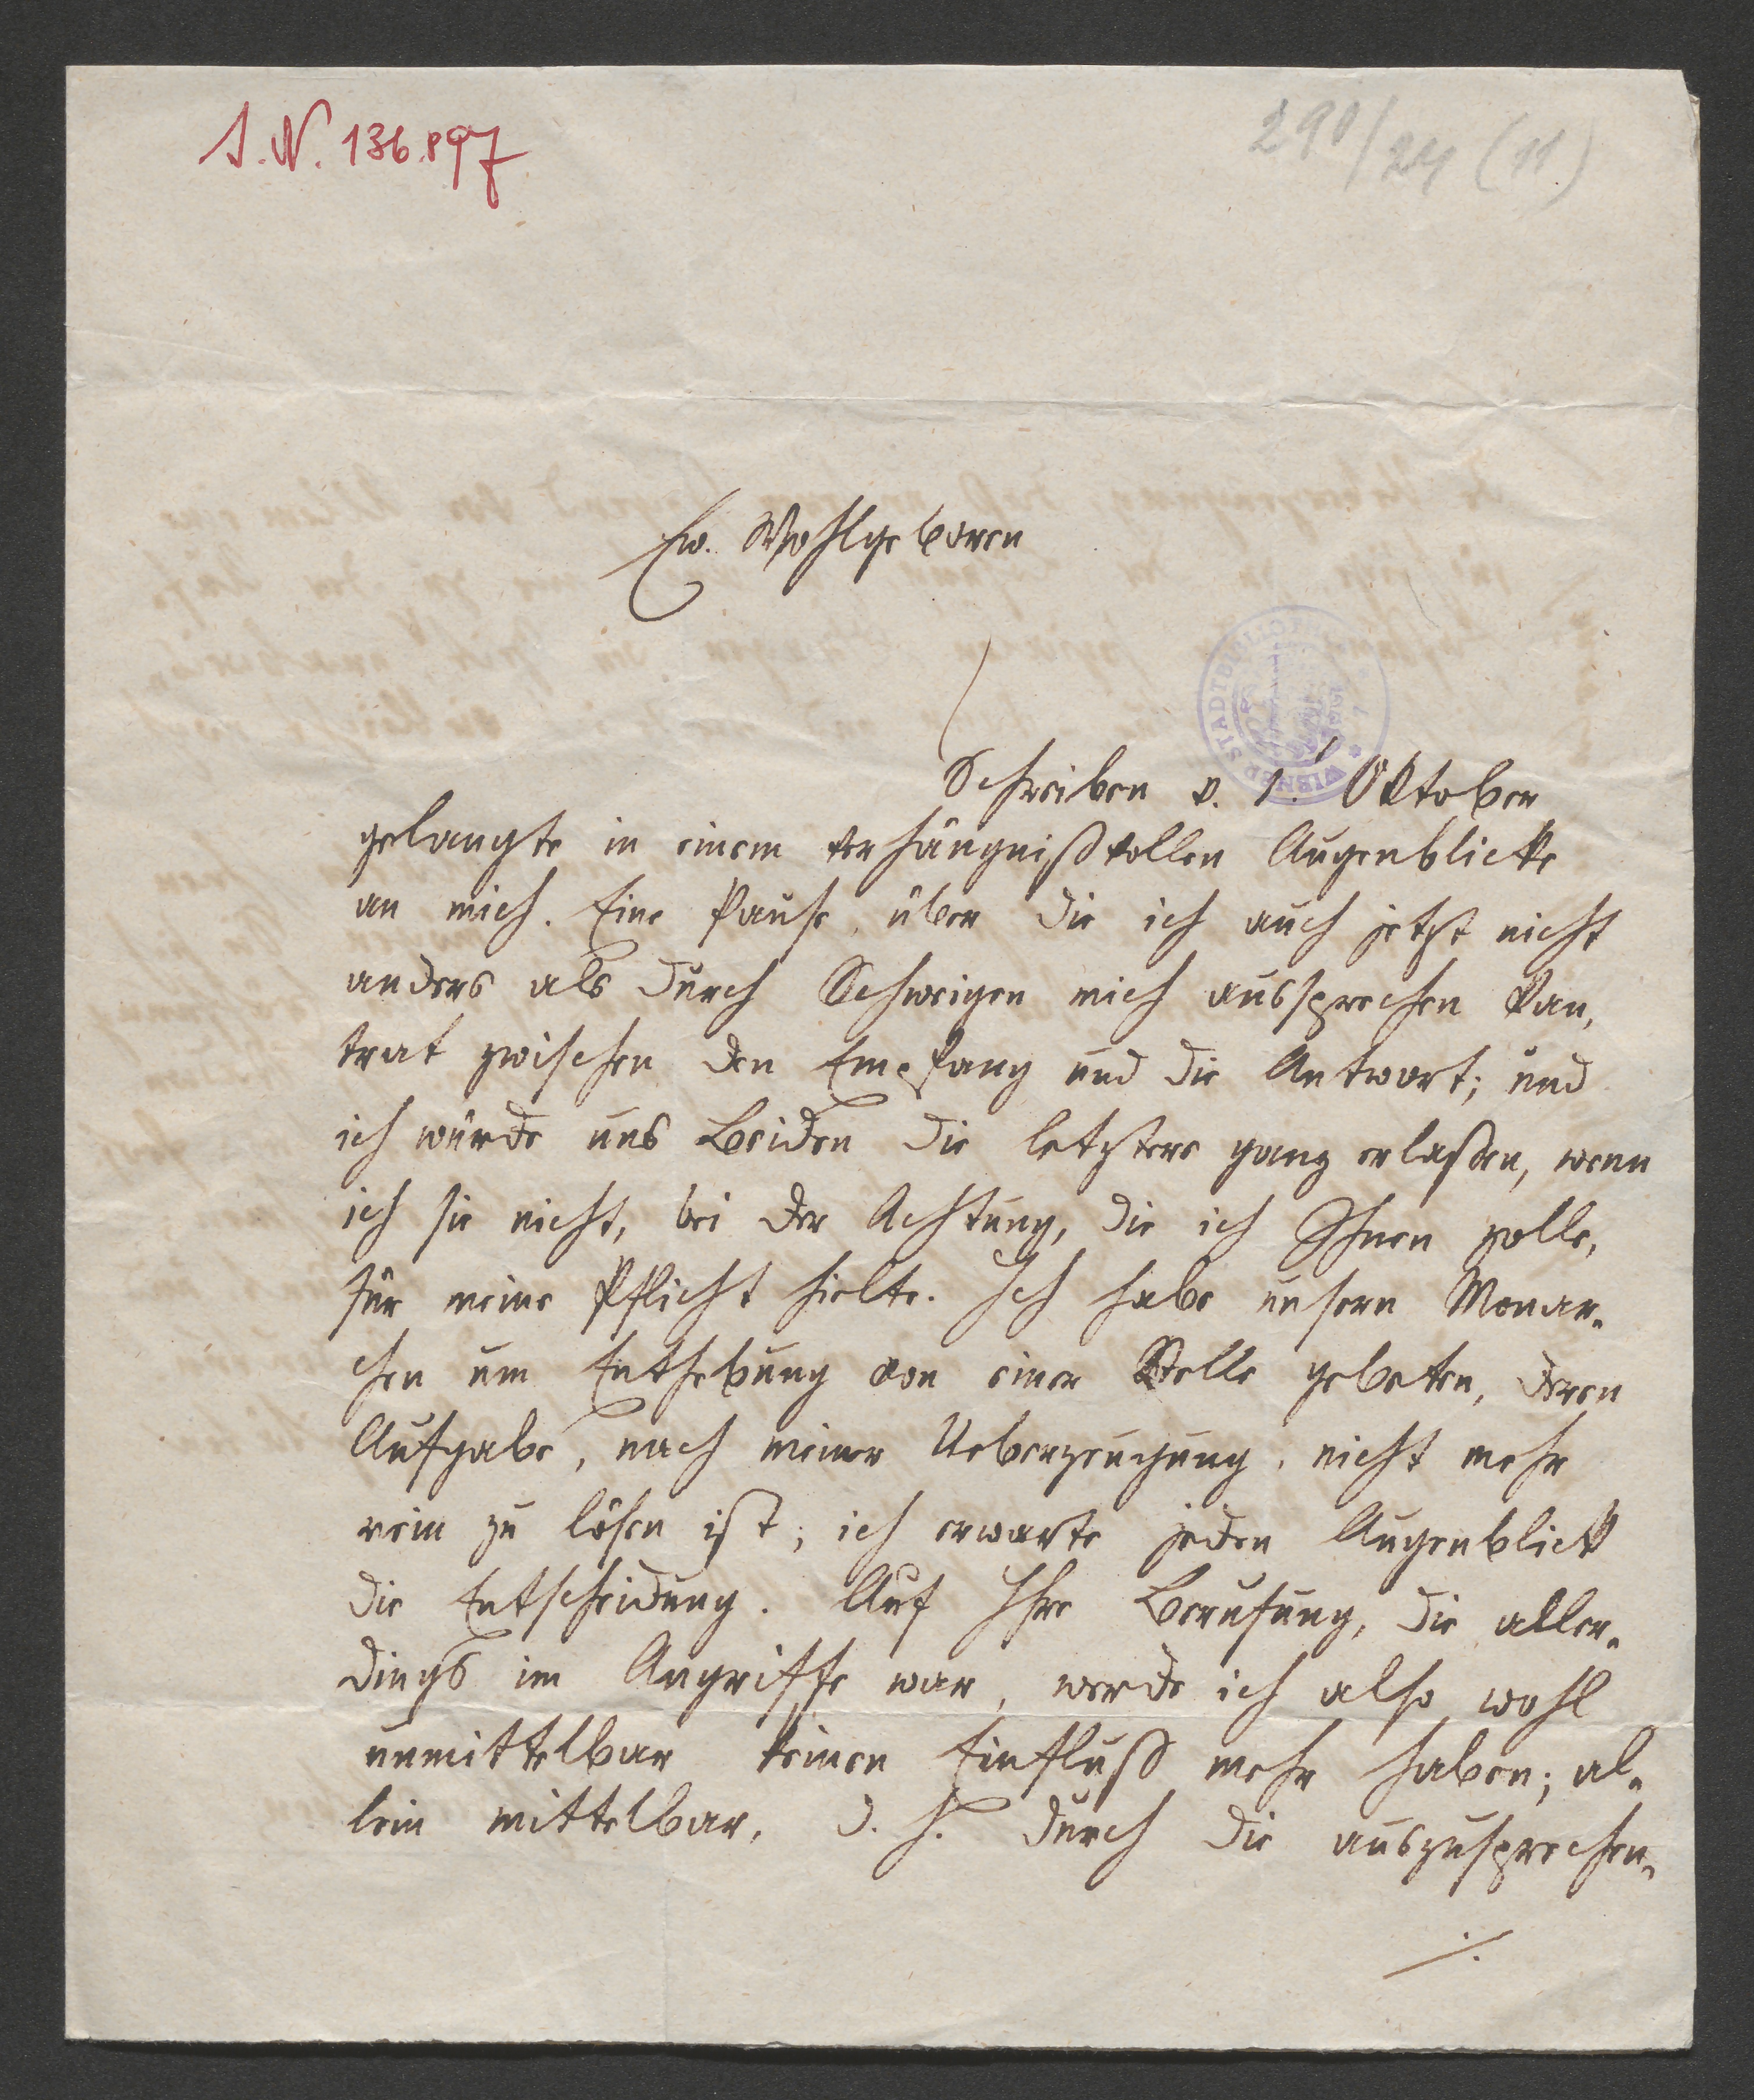 I.N. 136.897
290/24 (11)
Ew. Wohlgeboren
WIENER STADTBIBLIOTHEK
Schreiben v. 1. Oktober
gelangte in einem verhängnißvollen Augenblicke
an mich. Eine Pause, über die ich auch jetzt nicht
anders als durch Schweigen mich aussprechen kan,
trat zwischen den Empfang und die Antwort; und
ich würde uns Beiden die letztere ganz erlaßen, wenn
ich sie nicht, bei der Achtung, die ich Ihnen zolle,
für meine Pflicht hielte. Ich habe unsern Monar-
chen um Enthebung von einer Stelle gebeten, deren
Aufgabe, nach meiner Ueberzeugung, nicht mehr
rein zu lösen ist; ich erwarte jeden Augenblick
die Entscheidung. Auf Ihre Berufung, die aller-
dings im Angriffe war, werde ich also wohl
unmittelbar keinen Einfluß mehr haben; al-
lein mittelbar, d. h. durch die auszusprechen-
./.